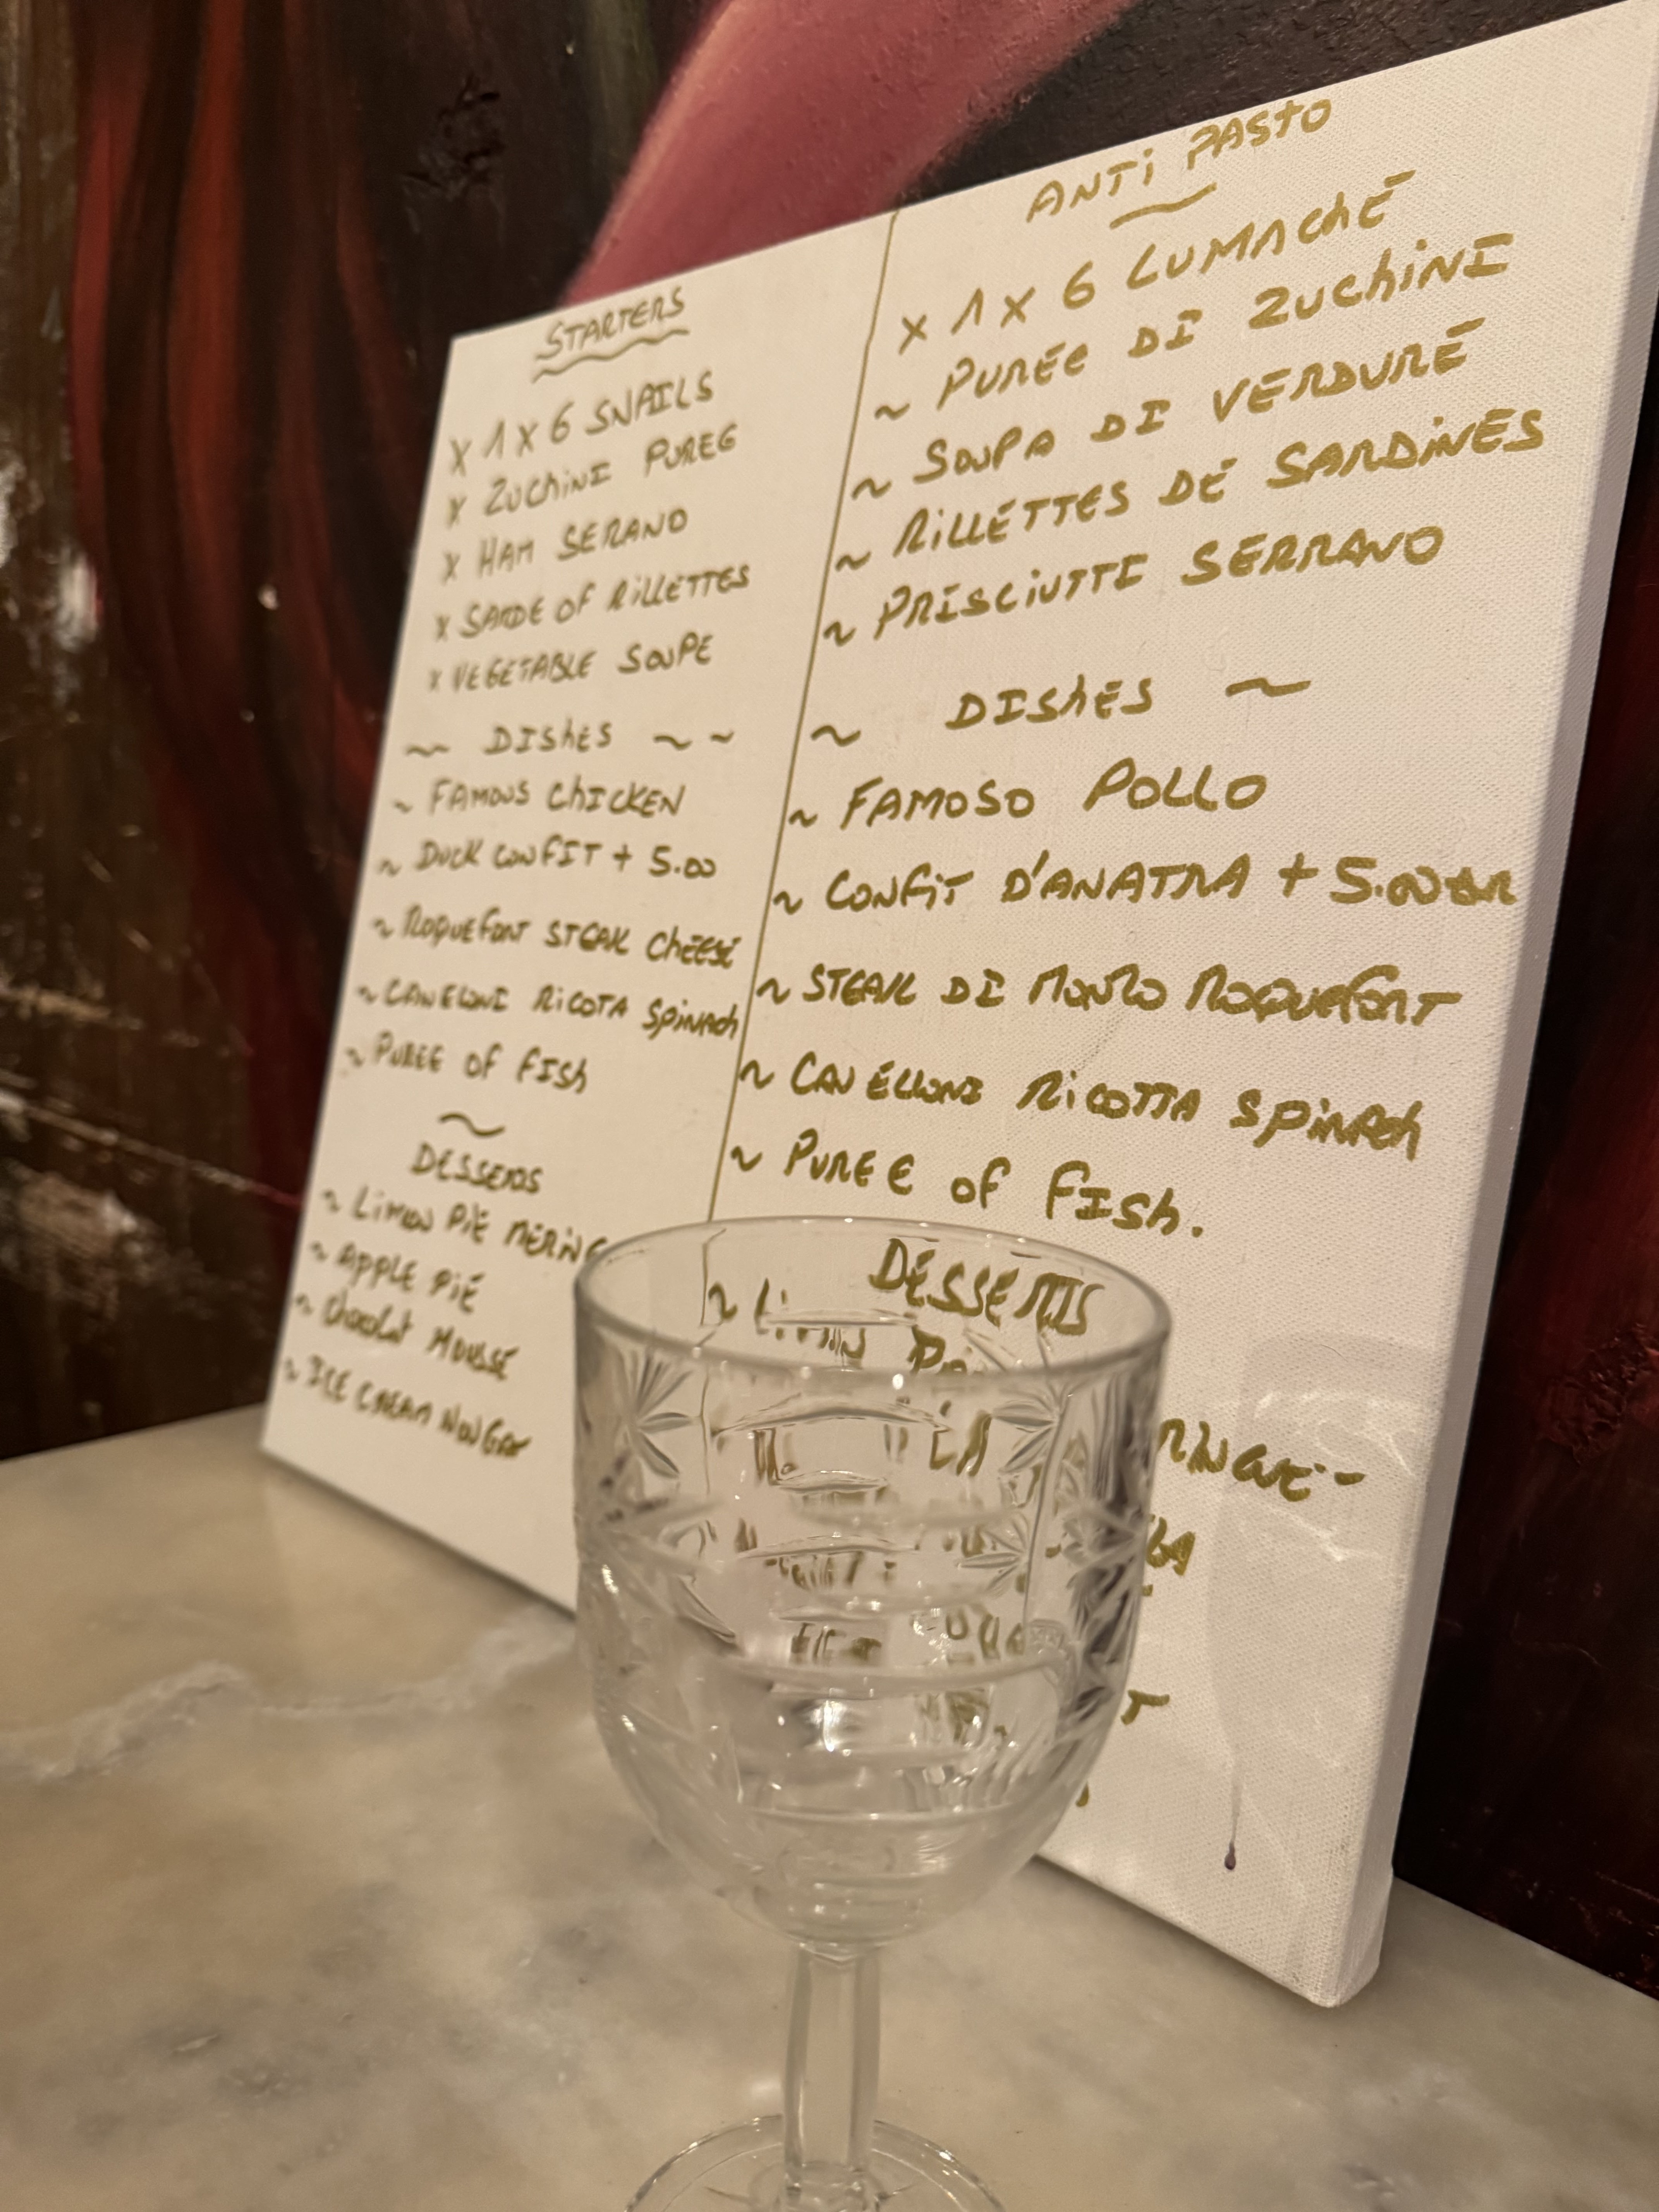 STARTERS
x 1 x 6 SNAILS
x ZUCHINI PUREE
x HAM SERANO
x SARDE OF RILLETTES
x VEGETABLE SOUPE
~ DISHES ~ ~
~ FAMOUS CHICKEN
~ DUCK CONFIT + 5.00
~ ROQUEFORT STEAK CHEESE
~ CANELONI RICOTA SPINACH
~ PUREE OF FISH
~
DESSERTS
~ LIMON PIE MERING
~ APPLE PIE
~ Chocolat MOUSSE
~ ICE CREAM NOUGAT
ANTI PASTO
x 1 x 6 LUMACHE
~ PUREE DI ZUCHINI
~ SOUPA DI VERDURE
~ RILLETTES DE SARDINES
~ PRISCIUTTI SERRANO
~ DISHES ~
~ FAMOSO POLLO
~ CONFIT D'ANATRA + 5.00 EUR
~ STEAK DI MONZO ROQUEFORT
~ CANELLONI RICOTTA SPINACH
~ PUREE OF FISH.
DESSERTS
LA